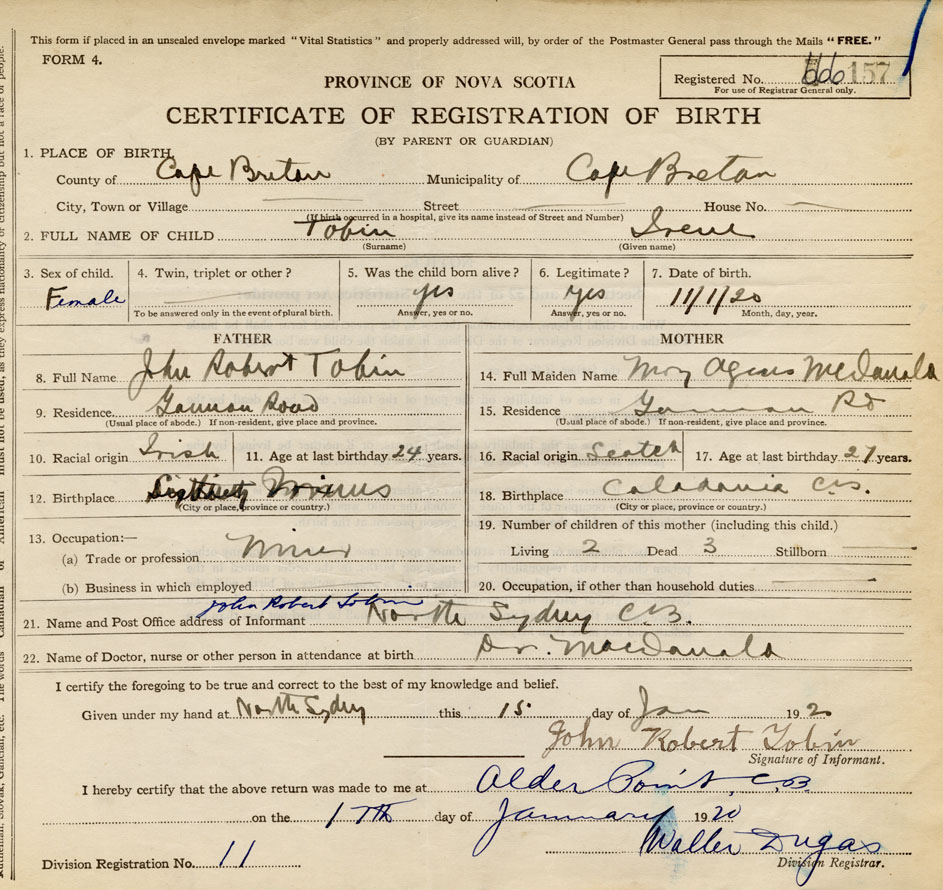 This form if placed in an unsealed envelope marked "Vital Statistics" and properly addressed will, by order of the Postmaster General pass through the Mails "FREE."
FORM 4.
Registered No. 157
For use of Registrar General only.
PROVINCE OF NOVA SCOTIA
CERTIFICATE OF REGISTRATION OF BIRTH
(BY PARENT OR GUARDIAN)
1. PLACE OF BIRTH
County of Cape Breton Municipality of Cape Breton
City, Town or Village Street House No.
(If birth occurred in a hospital, give its name instead of Street and Number)
2. FULL NAME OF CHILD Tobin Irene
(Surname) (Given name)
3. Sex of child. 4. Twin, triplet or other? 5. Was the child born alive? 6. Legitimate? 7. Date of birth.
Female yes yes 11/1/20
To be answered only in the event of plural birth. Answer, yes or no. Answer, yes or no. Month, day, year.
FATHER MOTHER
8. Full Name John Robert Tobin 14. Full Maiden Name Mary Agnes McDonald
9. Residence Gannon Road 15. Residence Gannon Rd
(Usual place of abode.) If non-resident, give place and province. (Usual place of abode.) If non-resident, give place and province.
10. Racial origin Irish 11. Age at last birthday 24 years. 16. Racial origin Scotch 17. Age at last birthday 27 years.
12. Birthplace Mines 18. Birthplace Caladonia C.B.
(City or place, province or country.) (City or place, province or country.)
13. Occupation:— 19. Number of children of this mother (including this child.)
(a) Trade or profession Miner Living 2 Dead 3 Stillborn
(b) Business in which employed 20. Occupation, if other than household duties
John Robert Tobin
21. Name and Post Office address of Informant North Sydney C.B.
22. Name of Doctor, nurse or other person in attendance at birth Dr. MacDonald
I certify the foregoing to be true and correct to the best of my knowledge and belief.
Given under my hand at North Sydney this 15 day of Jan 1920
John Robert Tobin
Signature of Informant.
I hereby certify that the above return was made to me at Alder Point, C.B.
on the 17th day of January 1920
Walter Dugas
Division Registration No. 11 Division Registrar.